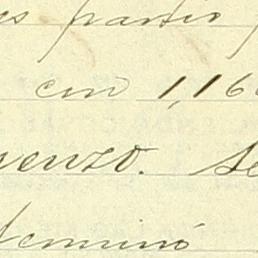 es partio
con 1,16
enzo. Se
terminó